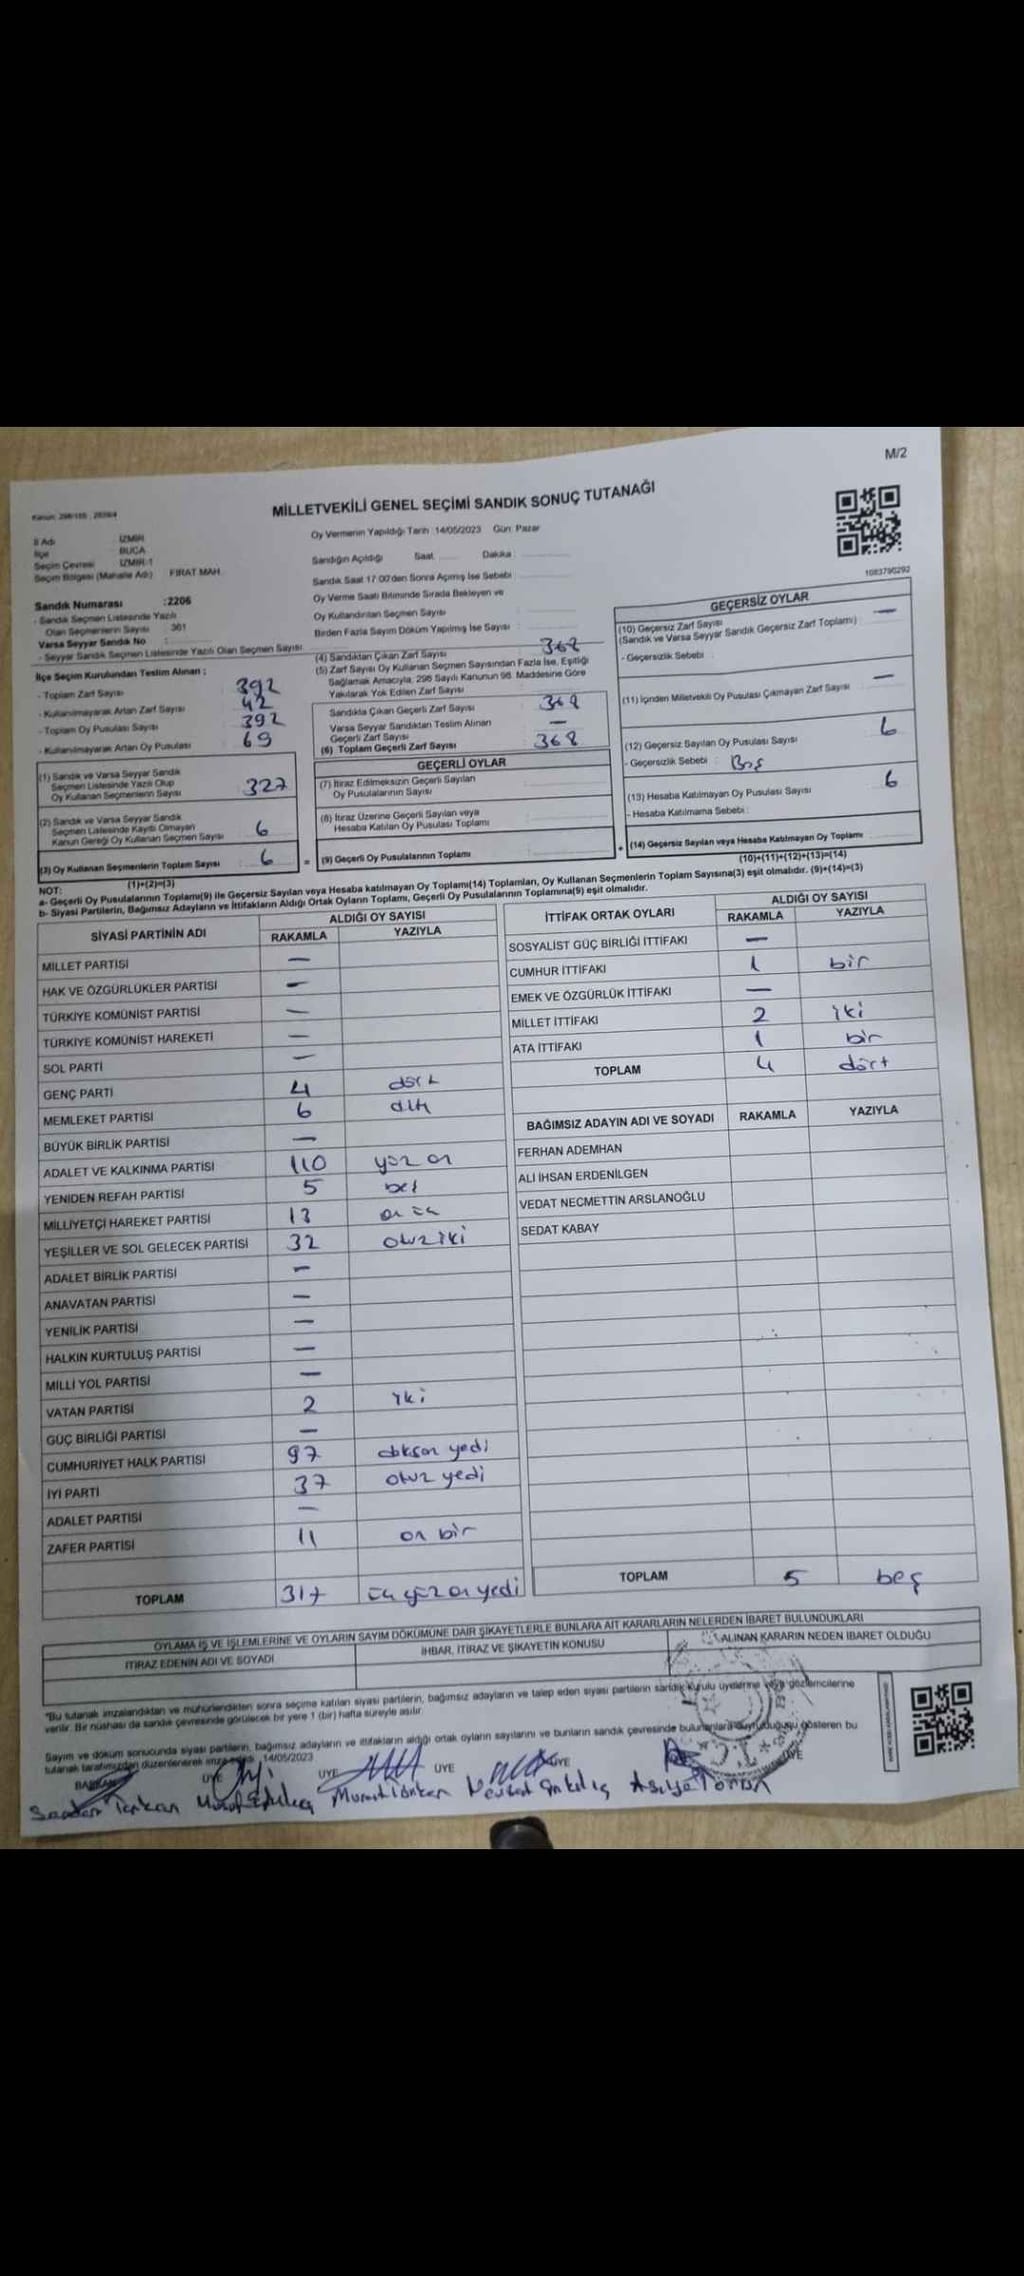 M/2
MİLLETVEKİLİ GENEL SEÇİMİ SANDIK SONUÇ TUTANAĞI
İl Adı : İZMİR
İlçe : BUCA
Seçim Çevresi : İZMİR-1
Seçim Bölgesi (Mahalle Adı) FIRAT MAH.
Oy Vermenin Yapıldığı Tarih :14/05/2023 Gün: Pazar
Sandığın Açıldığı Saat Dakika :
Sandık Saat 17:00'den Sonra Açılmış İse Sebebi :
Oy Verme Saati Bitiminde Sırada Bekleyen ve
Oy Kullandırılan Seçmen Sayısı :
Birden Fazla Sayım Döküm Yapılmış İse Sayısı :
1083790292
Sandık Numarası :2206
- Sandık Seçmen Listesinde Yazılı
Olan Seçmenlerin Sayısı
Varsa Seyyar Sandık No :
- Seyyar Sandık Seçmen Listesinde Yazılı Olan Seçmen Sayısı
İlçe Seçim Kurulundan Teslim Alınan :
- Toplam Zarf Sayısı 392
- Kullanılmayarak Artan Zarf Sayısı 42
- Toplam Oy Pusulası Sayısı 392
- Kullanılmayarak Artan Oy Pusulası 69
(1) Sandık ve Varsa Seyyar Sandık
Seçmen Listesinde Yazılı Olup
Oy Kullanan Seçmenlerin Sayısı : 327
(2) Sandık ve Varsa Seyyar Sandık
Seçmen Listesinde Kayıtlı Olmayan
Kanun Gereği Oy Kullanan Seçmen Sayısı : 6
(3) Oy Kullanan Seçmenlerin Toplam Sayısı : 6
(1)+(2)=(3)
(4) Sandıktan Çıkan Zarf Sayısı : 368
(5) Zarf Sayısı Oy Kullanan Seçmen Sayısından Fazla İse, Eşitliği
Sağlamak Amacıyla, 298 Sayılı Kanunun 98. Maddesine Göre
Yakılarak Yok Edilen Zarf Sayısı :
Sandıkta Çıkan Geçerli Zarf Sayısı : 368
Varsa Seyyar Sandıktan Teslim Alınan
Geçerli Zarf Sayısı : —
(6) Toplam Geçerli Zarf Sayısı : 368
GEÇERLİ OYLAR
(7) İtiraz Edilmeksizin Geçerli Sayılan
Oy Pusulalarının Sayısı
(8) İtiraz Üzerine Geçerli Sayılan veya
Hesaba Katılan Oy Pusulası Toplamı
= (9) Geçerli Oy Pusulalarının Toplamı
GEÇERSİZ OYLAR
(10) Geçersiz Zarf Sayısı —
(Sandık ve Varsa Seyyar Sandık Geçersiz Zarf Toplamı)
- Geçersizlik Sebebi :
(11) İçinden Milletvekili Oy Pusulası Çıkmayan Zarf Sayısı —
(12) Geçersiz Sayılan Oy Pusulası Sayısı 6
- Geçersizlik Sebebi : Boş
(13) Hesaba Katılmayan Oy Pusulası Sayısı 6
- Hesaba Katılmama Sebebi :
+ (14) Geçersiz Sayılan veya Hesaba Katılmayan Oy Toplamı
(10)+(11)+(12)+(13)=(14)
NOT:
a- Geçerli Oy Pusulalarının Toplamı(9) ile Geçersiz Sayılan veya Hesaba katılmayan Oy Toplamı(14) Toplamları, Oy Kullanan Seçmenlerin Toplam Sayısına(3) eşit olmalıdır. (9)+(14)=(3)
b- Siyasi Partilerin, Bağımsız Adayların ve İttifakların Aldığı Ortak Oyların Toplamı, Geçerli Oy Pusulalarının Toplamına(9) eşit olmalıdır.
SİYASİ PARTİNİN ADI ALDIĞI OY SAYISI
RAKAMLA YAZIYLA
MİLLET PARTİSİ —
HAK VE ÖZGÜRLÜKLER PARTİSİ —
TÜRKİYE KOMÜNİST PARTİSİ —
TÜRKİYE KOMÜNİST HAREKETİ —
SOL PARTİ —
GENÇ PARTİ 4 dört
MEMLEKET PARTİSİ 6 altı
BÜYÜK BİRLİK PARTİSİ —
ADALET VE KALKINMA PARTİSİ 110 yüz on
YENİDEN REFAH PARTİSİ 5 beş
MİLLİYETÇİ HAREKET PARTİSİ 13 on üç
YEŞİLLER VE SOL GELECEK PARTİSİ 32 otuz iki
ADALET BİRLİK PARTİSİ —
ANAVATAN PARTİSİ —
YENİLİK PARTİSİ —
HALKIN KURTULUŞ PARTİSİ —
MİLLİ YOL PARTİSİ —
VATAN PARTİSİ 2 iki
GÜÇ BİRLİĞİ PARTİSİ —
CUMHURİYET HALK PARTİSİ 97 doksan yedi
İYİ PARTİ 37 otuz yedi
ADALET PARTİSİ —
ZAFER PARTİSİ 11 on bir
TOPLAM 317 üç yüz on yedi
İTTİFAK ORTAK OYLARI ALDIĞI OY SAYISI
RAKAMLA YAZIYLA
SOSYALİST GÜÇ BİRLİĞİ İTTİFAKI —
CUMHUR İTTİFAKI 1 bir
EMEK VE ÖZGÜRLÜK İTTİFAKI —
MİLLET İTTİFAKI 2 iki
ATA İTTİFAKI 1 bir
TOPLAM 4 dört
BAĞIMSIZ ADAYIN ADI VE SOYADI RAKAMLA YAZIYLA
FERHAN ADEMHAN
ALİ İHSAN ERDENİLGEN
VEDAT NECMETTİN ARSLANOĞLU
SEDAT KABAY
TOPLAM 5 beş
OYLAMA İŞ VE İŞLEMLERİNE VE OYLARIN SAYIM DÖKÜMÜNE DAİR ŞİKAYETLERLE BUNLARA AİT KARARLARIN NELERDEN İBARET BULUNDUKLARI
İTİRAZ EDENİN ADI VE SOYADI İHBAR, İTİRAZ VE ŞİKAYETİN KONUSU ALINAN KARARIN NEDEN İBARET OLDUĞU
*Bu tutanak imzalandıktan ve mühürlendikten sonra seçime katılan siyasi partilerin, bağımsız adayların ve talep eden siyasi partilerin sandık kurulu üyelerine veya gözlemcilerine
verilir. Bir nüshası da sandık çevresinde görülecek bir yere 1 (bir) hafta süreyle asılır.
Sayım ve döküm sonucunda siyasi partilerin, bağımsız adayların ve ittifakların aldığı ortak oyların sayılarını ve bunların sandık çevresinde bulunanlara duyurulduğunu gösteren bu
tutanak tarafımızdan düzenlenerek imza 14/05/2023
BAŞKAN ÜYE ÜYE ÜYE ÜYE ÜYE
Asiye Torun